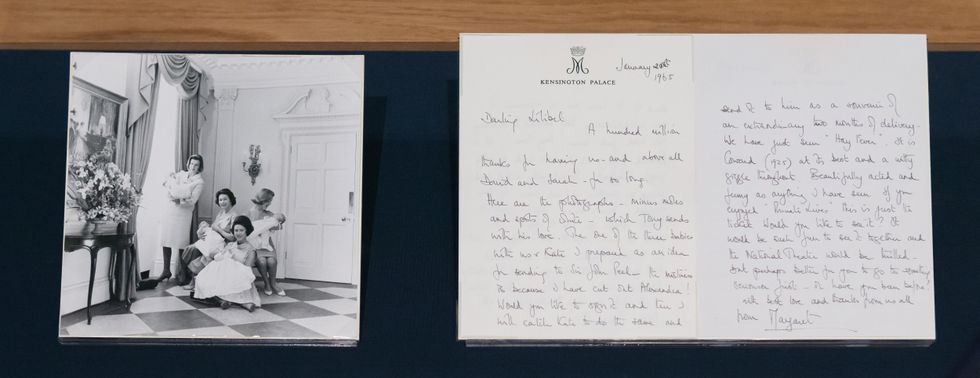 M
KENSINGTON PALACE
January
1965
Darling Lilibet
A hundred million
thanks for having us - and above all
David and Sarah - for so long.
Here are the photographs - minus
and spots of - which Tony sends
with his love. The one of the three babies
with us & Kate I prepared as an idea
for sending to Sir John Peel - the
is because I have cut out Alexandra!
Would you like to sign it and then I
will catch Kate to do the same and
send it to him as a souvenir of
an extraordinary two months of delivery.
We have just seen "Hay Fever". It is
Coward (1925) at its best and a witty
giggle throughout. Beautifully acted and
funny as anything I have seen. If you
enjoyed "Private Lives" this is just the
ticket. Would you like to see it? It
would be such fun to see it together and
the National Theatre would be thrilled -
but perhaps better for you to go to
first - or have you been before?
with best love and thanks from us all
from Margaret